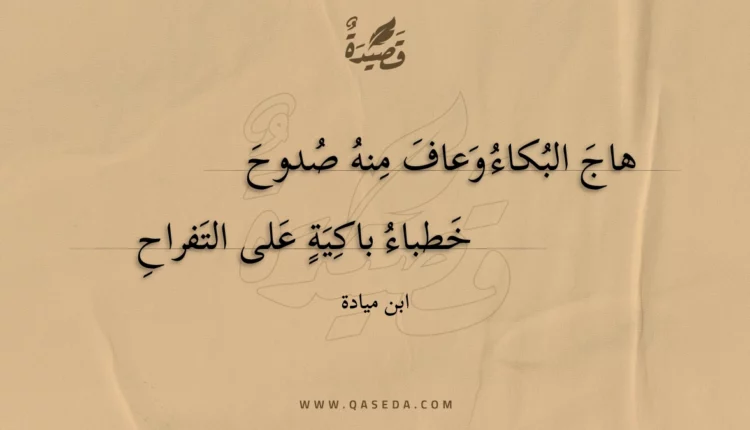 قَصِيدَةٌ
هاجَ البُكاءُوَعافَ مِنهُ صُدوحَ
خَطباءُ باكِيَةٍ عَلى التَفراحِ
ابن ميادة
WWW.QASEDA.COM